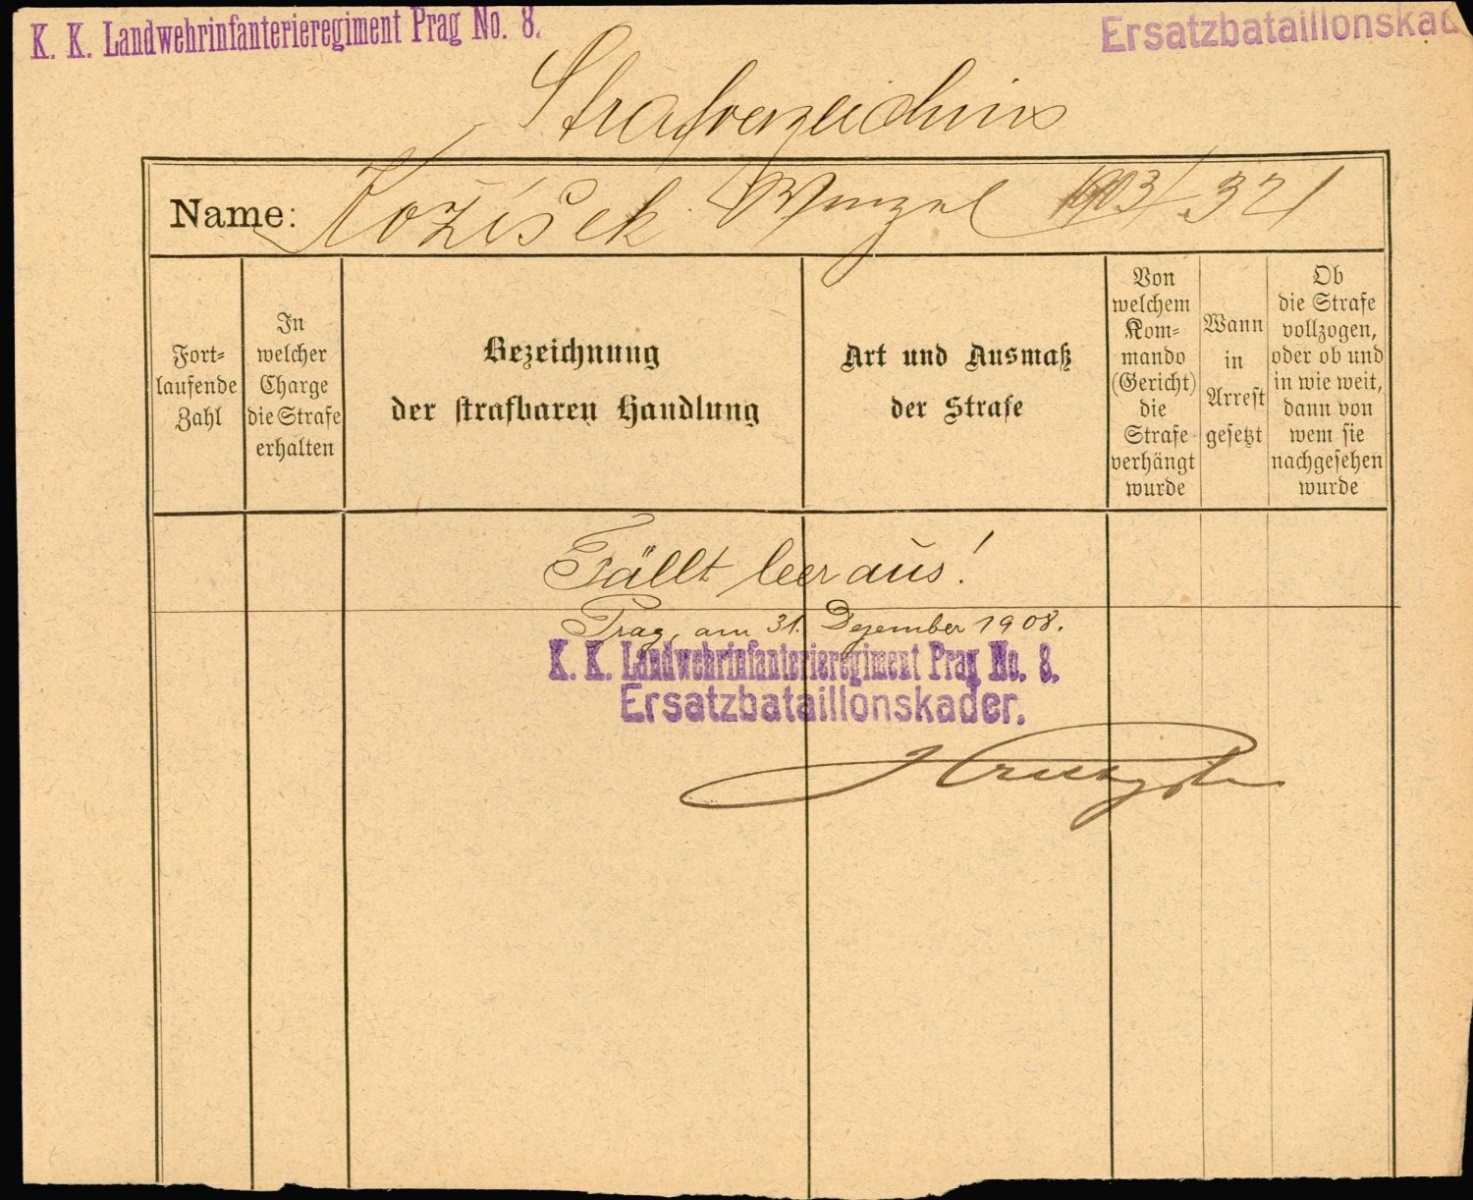 K. K. Landwehrinfanterieregiment Prag No. 8.
Ersatzbataillonskad
Strafverzeichnis
Name: Kožíšek Wenzel 1903/321
Fort-
laufende
Zahl
In
welcher
Charge
die Strafe
erhalten
Bezeichnung
der strafbaren Handlung
Art und Ausmaß
der Strafe
Von
welchem
Kom-
mando
(Gericht)
die
Strafe
verhängt
wurde
Wann
in
Arrest
gesetzt
Ob
die Strafe
vollzogen,
oder ob und
in wie weit,
dann von
wem sie
nachgesehen
wurde
Fällt leer aus!
Prag, am 31. Dezember 1908.
K. K. Landwehrinfanterieregiment Prag No. 8.
Ersatzbataillonskader.